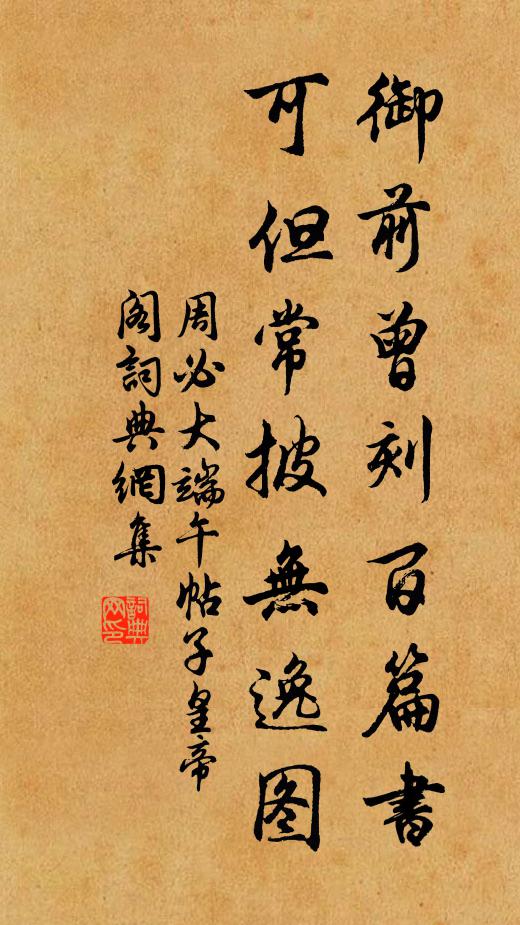 御前曾刻百篇書
可但常披無逸图
周必大端午帖子皇帝
阁詞典網集
詞典
网印